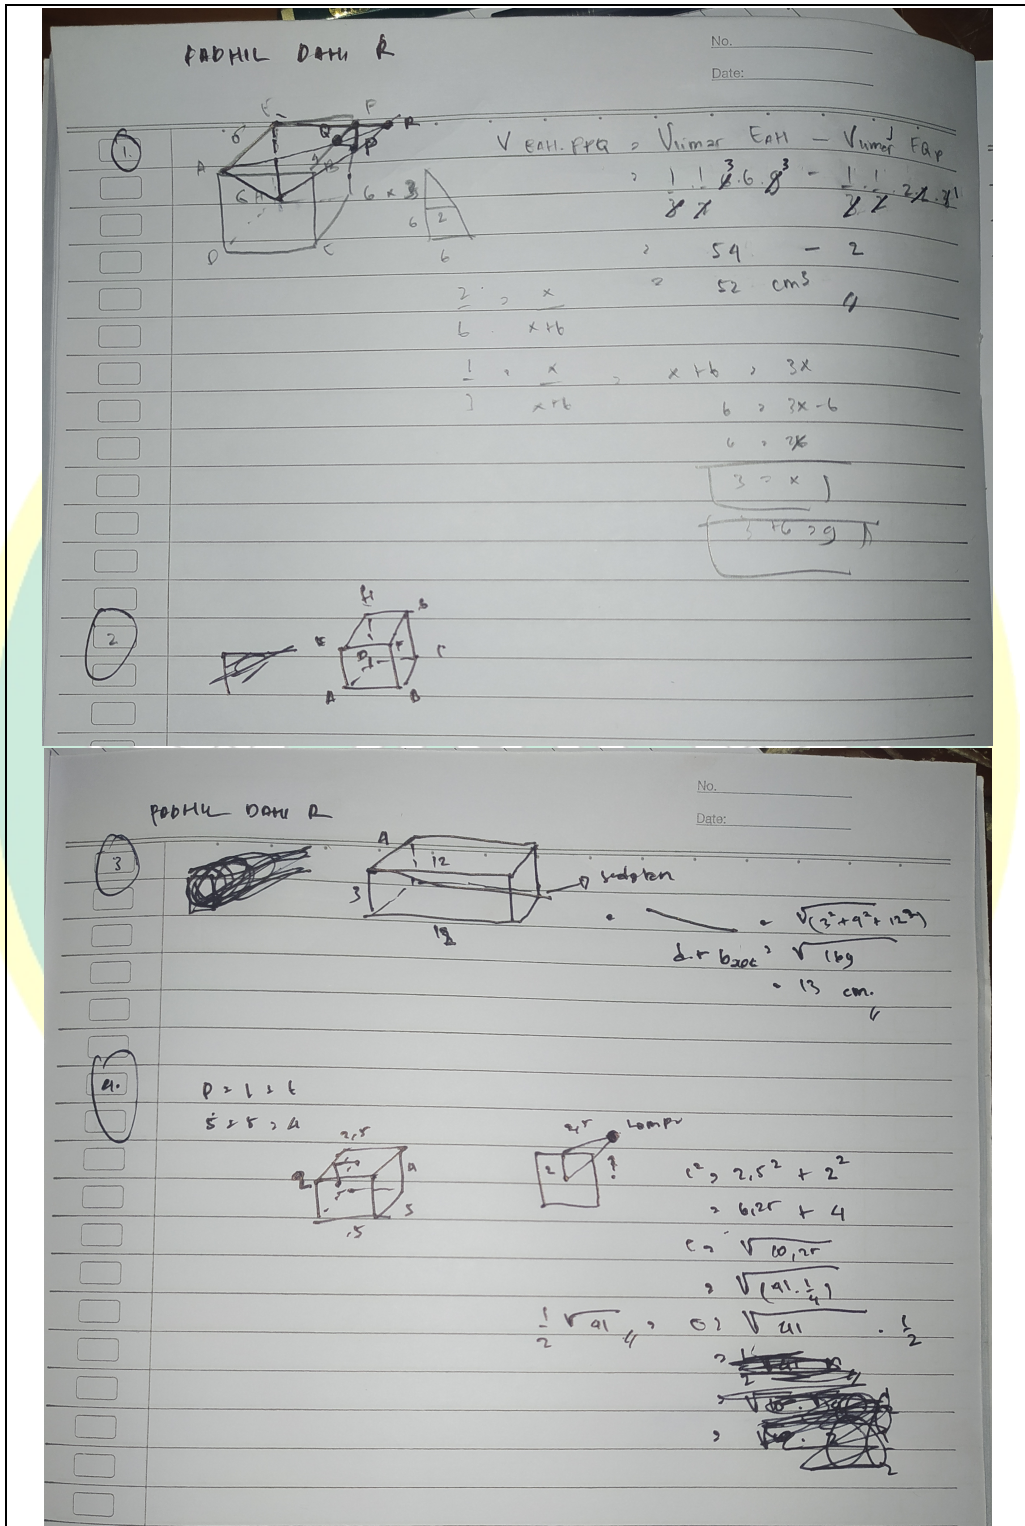 FADHIL DAHI R
No.
Date:
1.
E F R
6 Q P
A B
G H 6 x 3
6 2
D C 6
V EAH.FPQ = Vlimas EAH - Vlimas FQP
= 1/3 . 1/2 6 3 . 6 . 9 3 - 1/3 . 1/2 . 2 . 2 . 3 1
= 54 - 2
= 52 cm3
2/6 = x/x+6
1/3 = x/x+6 = x+6 = 3x
6 = 3x-6
6 = 2x
3 = x
3+6 = 9
2
H G
E F
D C
A B
No.
Date:
FADHIL DAHI R
3
A
12
3
sedotan
12
= √(3²+4²+12²)
d.r balok = √169
= 13 cm.
4.
P = l = t
5 = 5 = 4
2,5
2 4
5
.5
2,5 Lampu
2 ?
c² = 2,5² + 2²
= 6,25 + 4
c = √10,25
= √(41.1/4)
1/2 √41 = c = √41 . 1/2